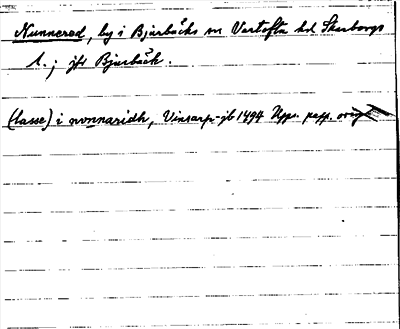 Nunnered, by i Bjurbäcks sn Vartofta hd Skarborgs
l.; jfr Bjurbäck.
(lasse) i nonnaridh, Vinsarp-jb 1494 Upps. papp.